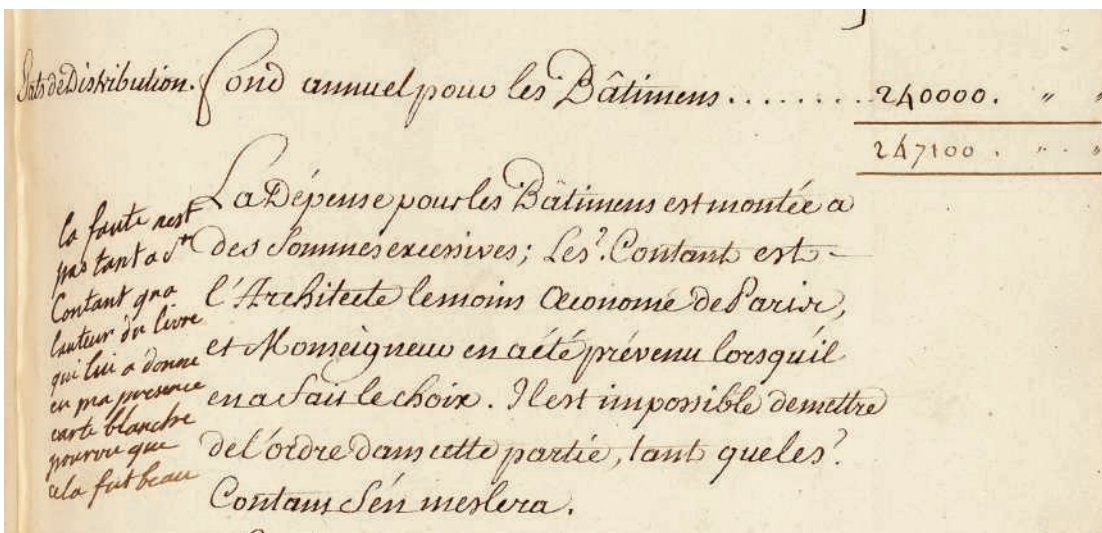 Etats de Distribution. Fond annuel pour les Bâtimens ......... 240000. " "
247100. " "
La Dépense pour les Bâtimens est montée a
des Sommes excessives; Le s.r Contant est
l'Architecte le moins Œconome de Paris,
et Monseigneur en a été prévenu lorsquil
en a fait le choix. Il est impossible de mettre
de l'ordre dans cette partie, tant que le s.r
Contant s'en meslera.
la faute nest
pas tant a Sr
Contant qua
lauteur du livre
qui lui a donné
en ma presence
carte blanche
pourvu que
cela fut beau